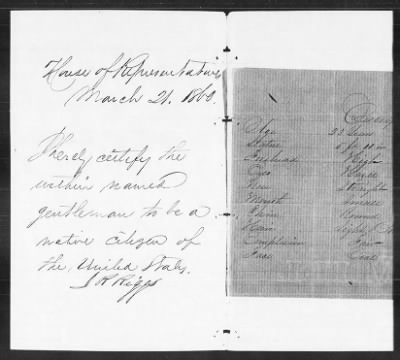 House of Representatives
March 21. 1860.
I hereby certify the
within named
gentleman to be a
native citizen of
the United States.
J R Riggs
Age 23 Years
Stature 5 ft
Forehead High
Eyes Hazel
Nose Straight
Mouth
Chin Round
Hair Light
Complexion Fair
Face Oval